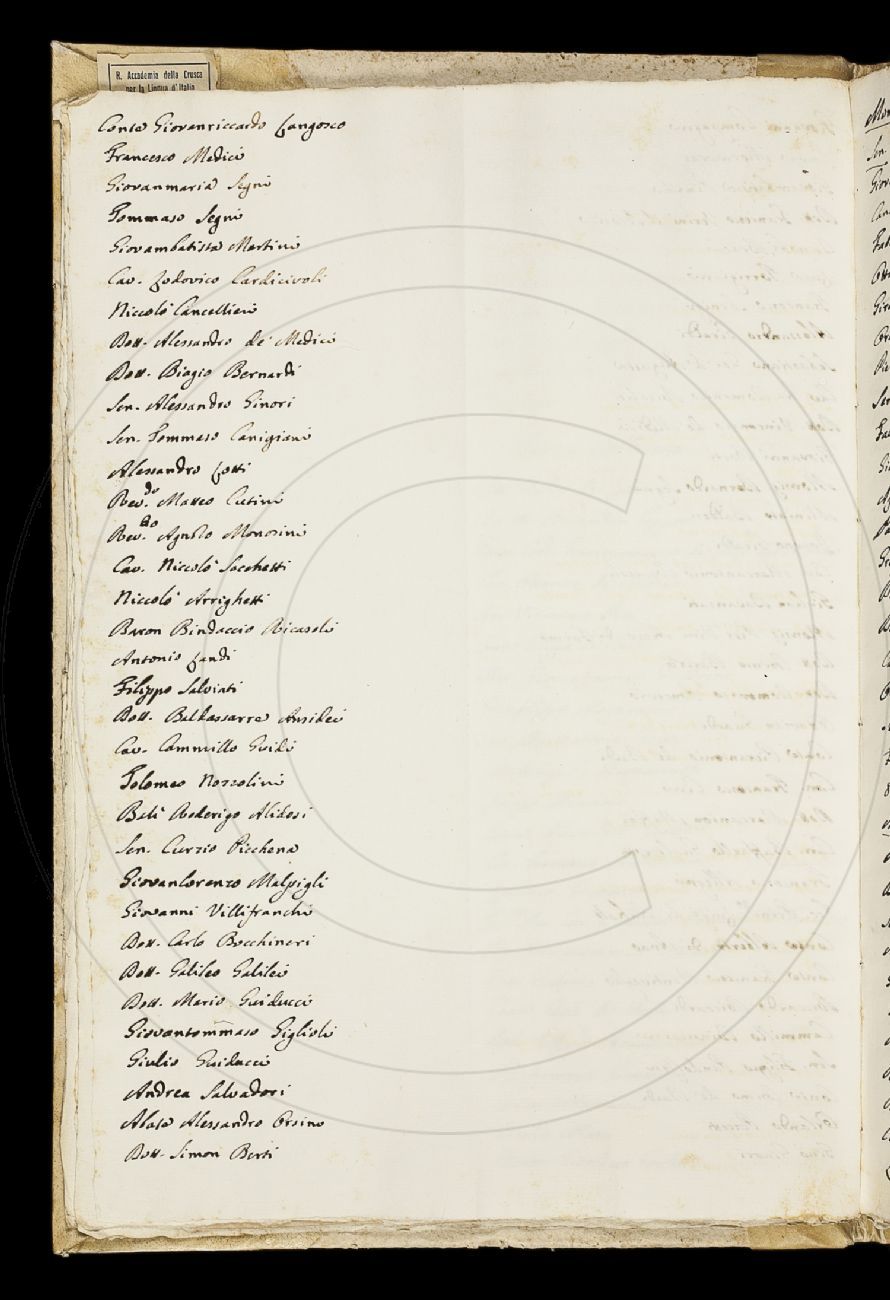 R. Accademia della Crusca
per la Lingua d'Italia
Conte Giovanriccardo Langosco
Francesco Medici
Giovanmaria Segni
Tommaso Segni
Giovambatista Martini
Cav. Lodovico Cardicivoli
Niccolò Cancellieri
Dott. Alessandro de' Medici
Dott. Biagio Bernardi
Sen. Alessandro Ginori
Sen. Tommaso Canigiani
Alessandro Lotti
Rev.do Matteo Cutini
Rev.do Agnolo Monosini
Cav. Niccolò Sacchetti
Niccolò Arrighetti
Baron Bindaccio Ricasoli
Antonio Landi
Filippo Salviati
Dott. Baldassarre Ansidei
Cav. Cammillo Guidi
Tolomeo Nozzolini
Balì Rodorigo Alidosi
Sen. Curzio Picchena
Giovanlorenzo Malpigli
Giovanni Villifranchi
Dott. Carlo Bocchineri
Dott. Galileo Galilei
Dott. Mario Guiducci
Giovantommaso Giglioli
Giulio Guiducci
Andrea Salvadori
Abate Alessandro Orsino
Dott. Simon Berti